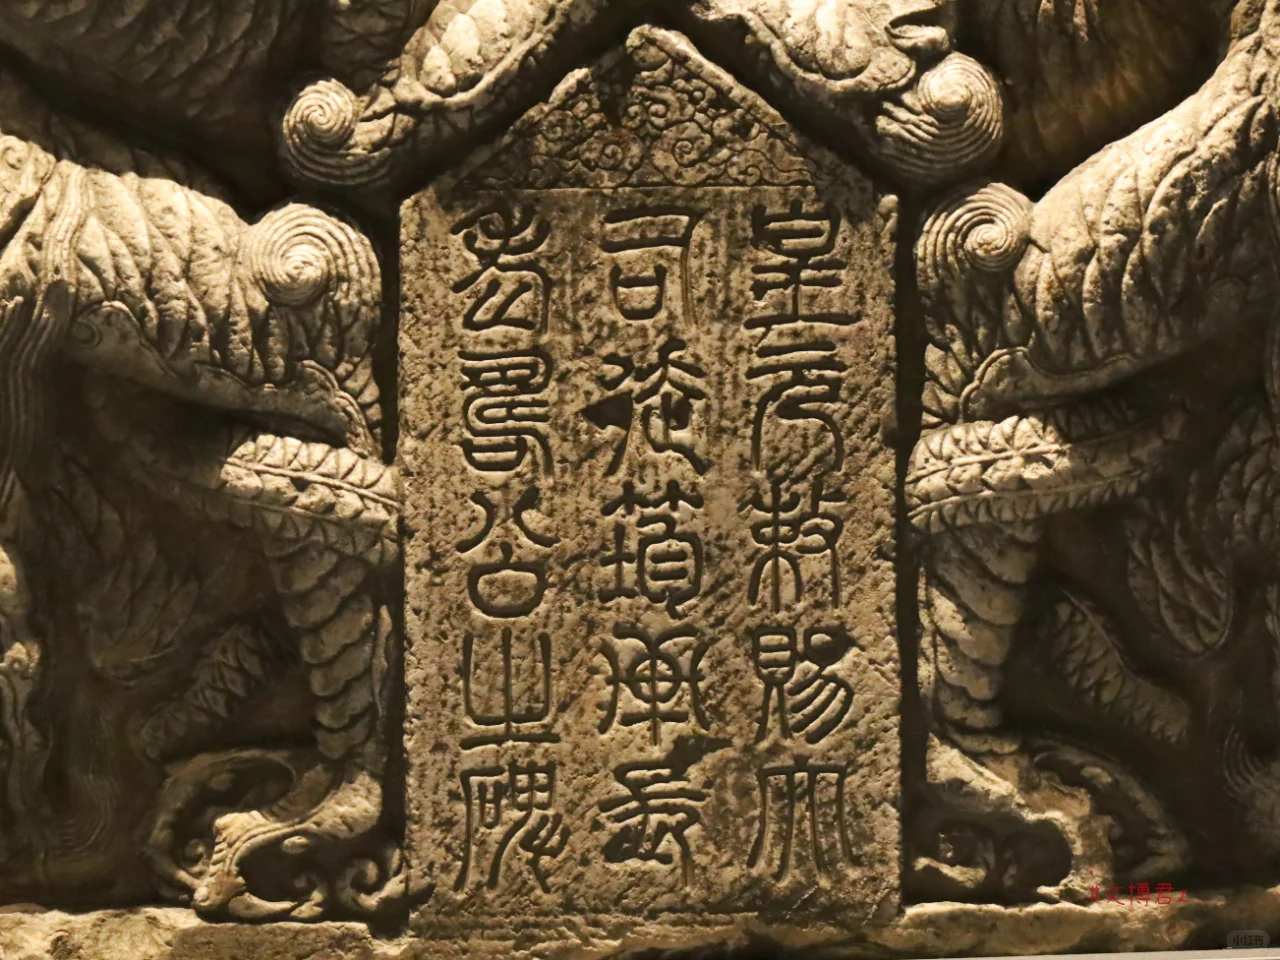 皇元敕賜大
司徒筠軒長
老壽公之碑
#文博君z
小红书